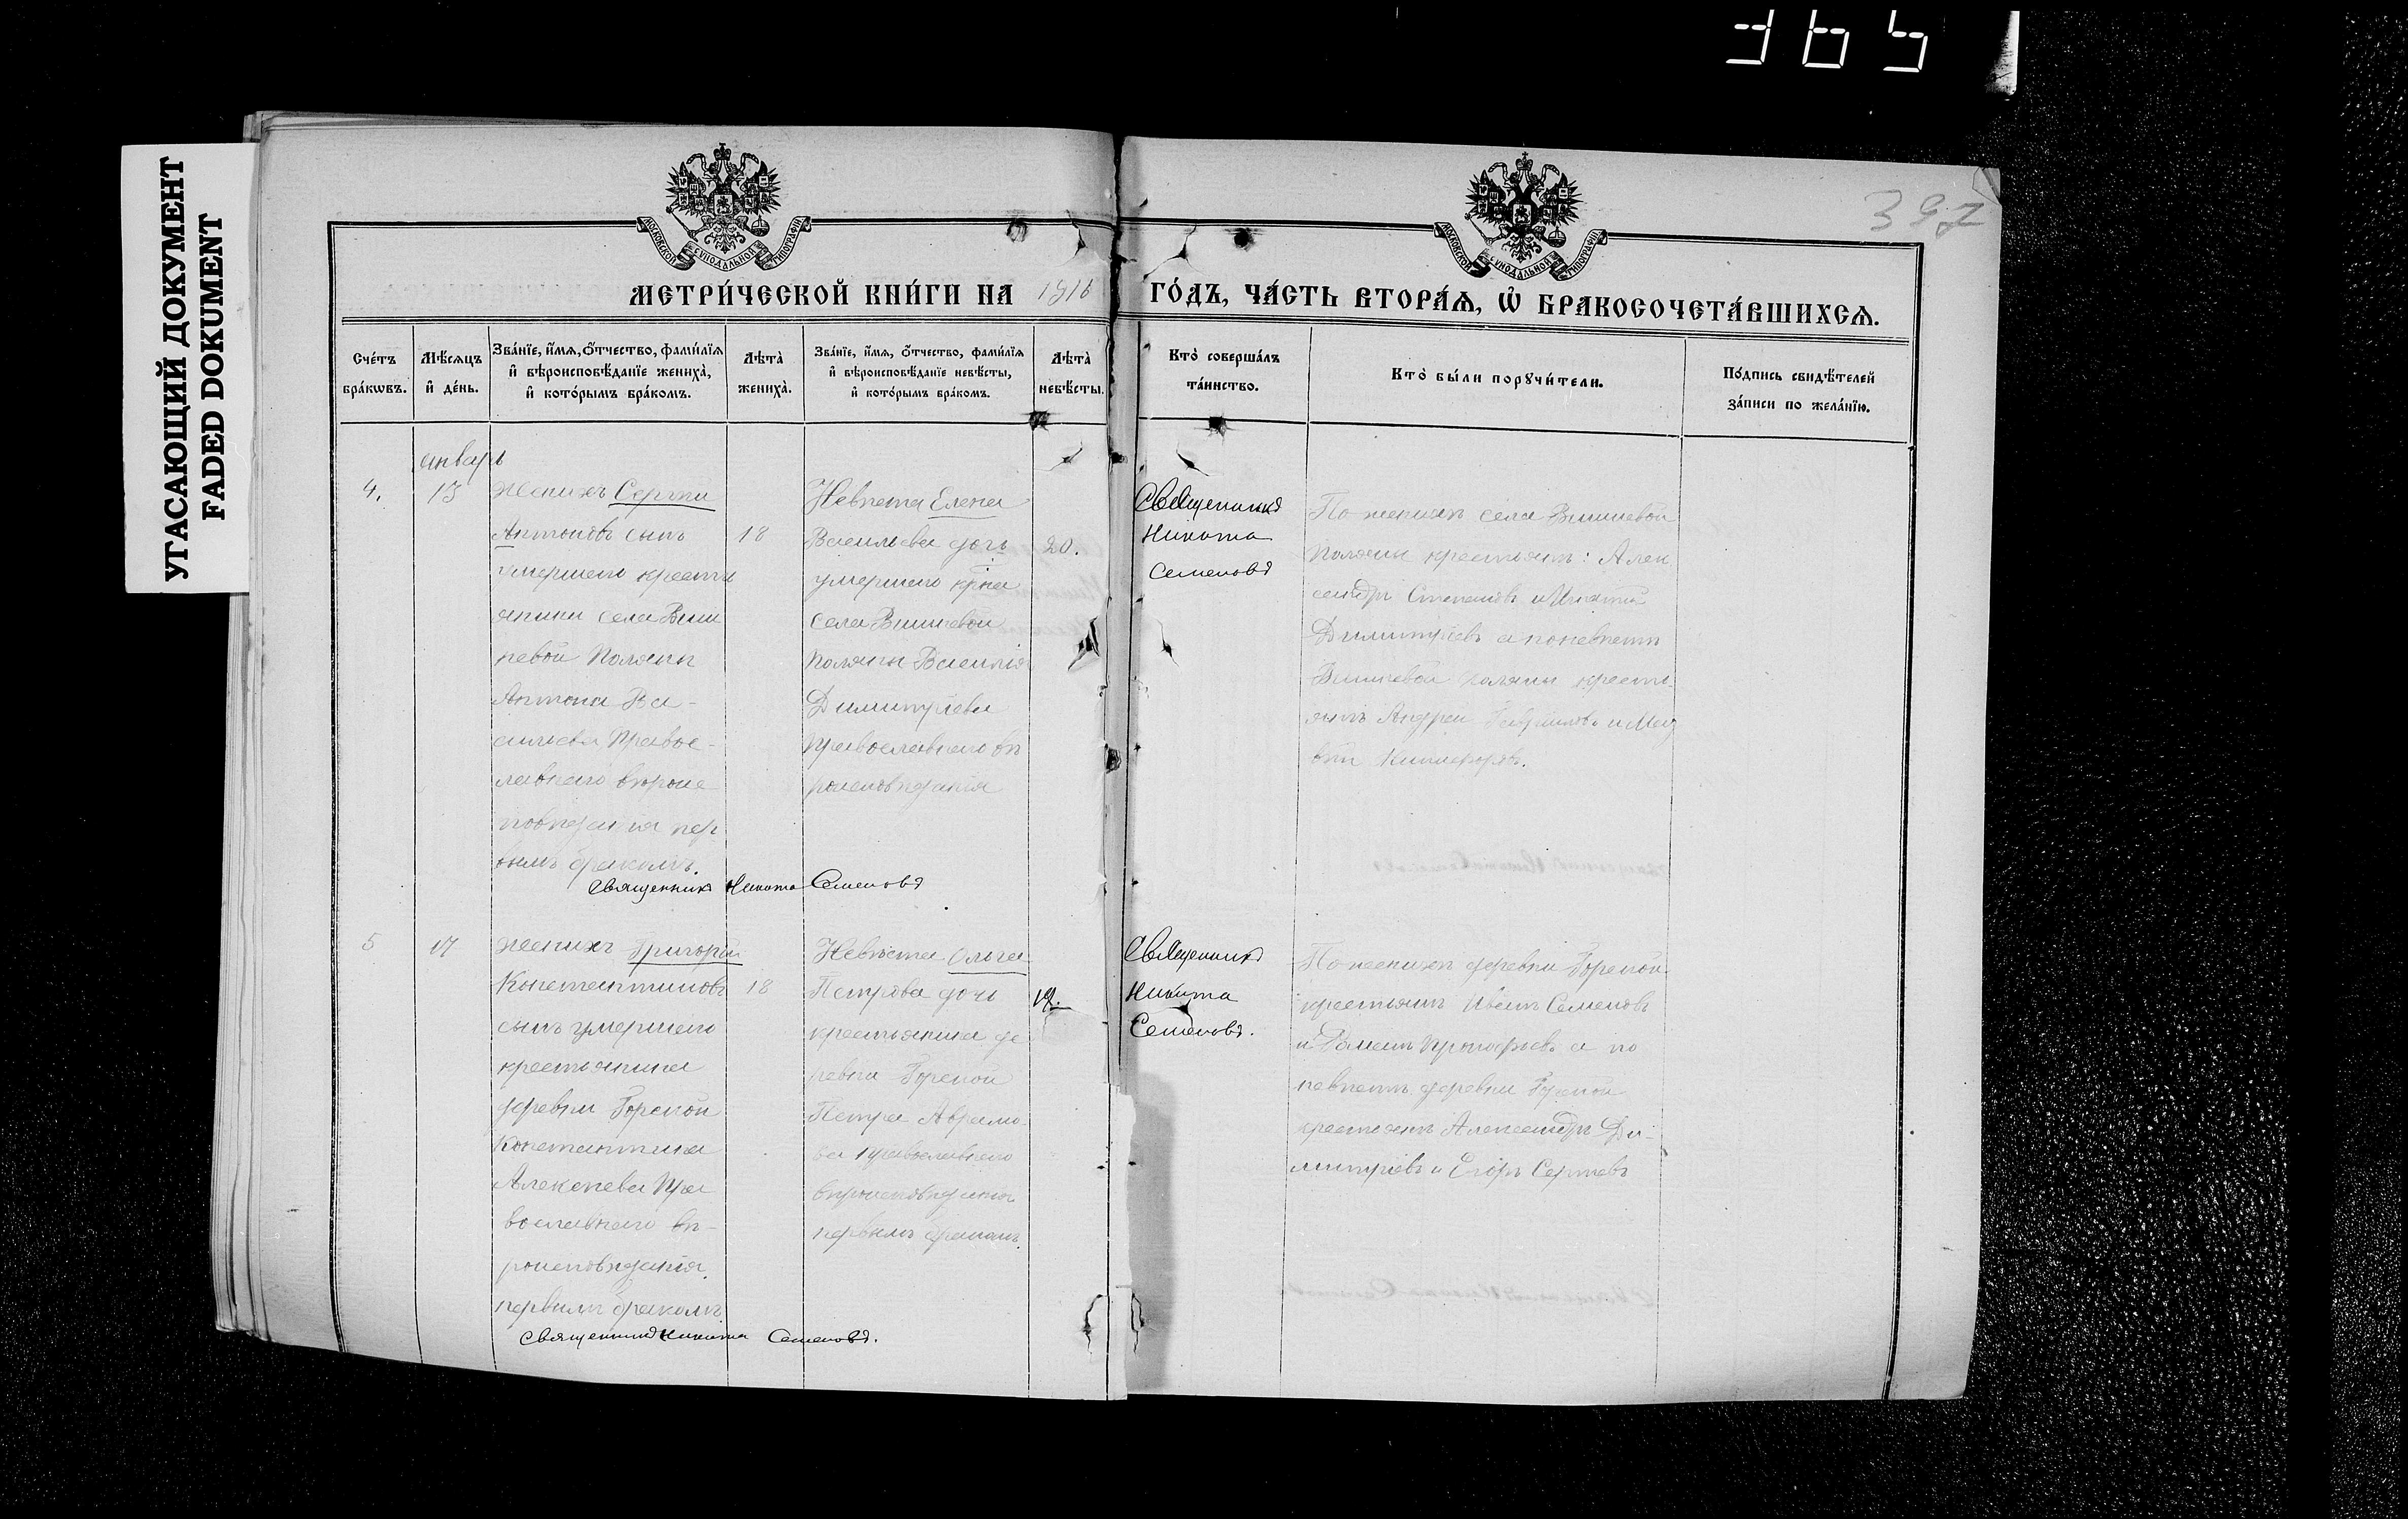 365
УГАСАЮЩИЙ ДОКУМЕНТ
FADED DOKUMENT
397
МОСКОВСКОЙ СѴНОДАЛЬНОЙ ТИПОГРАФІИ
МОСКОВСКОЙ СѴНОДАЛЬНОЙ ТИПОГРАФІИ
МЕТРИ́ЧЕСКОЙ КНИ́ГИ НА 1916 ГО́ДЪ, ЧА́СТЬ ВТОРА́Ѧ, Ѡ҆ БРАКОСОЧЕТА́ВШИХСѦ.
Счє́тъ бра́кѡвъ.
Мѣ́сѧцъ и҆ де́нь.
Зва́нїе, и҆́мѧ, ѻ҆́тчество, фами́лїѧ и҆ вѣроисповѣ́данїе жениха̀, и҆ кото́рымъ бра́комъ.
Лѣта̀ жениха̀.
Зва́нїе, и҆́мѧ, ѻ҆́тчество, фами́лїѧ и҆ вѣроисповѣ́данїе невѣ́сты, и҆ кото́рымъ бра́комъ.
Лѣта̀ невѣ́сты.
Кто̀ соверша́лъ та́инство.
Кто̀ бы́ли порꙋчи́тели.
По́дпись свидѣ́телей за́писи по жела́нїю.
январь
4.
13
женихъ Сергѣй
Антоновъ сынъ
умершего крестья
янина села Виш
невой Поляны
Антона Ва-
сильева Правос-
лавнаго вѣроис
повѣданія пер
вымъ бракомъ.
18
Невѣста Елена
Васильева дочь
умершего кр-на
села Вишневой
Поляны Василія
Димитріева
Православнаго вѣ
роисповѣданія
20.
Священникъ
Никита
Семеновъ
По женихѣ села Вишневой
Поляны крестьянъ: Алек
сандръ Степановъ и Игнатій
Димитріевъ а по невѣстѣ
Вишневой поляны кресть-
янъ Андрей Гавриловъ и Мат
вѣй Никифоровъ.
Священникъ Никита Семеновъ
5
17
женихъ Григорій
Константиновъ
сынъ умершего
крестьянина
деревни Горѣлой
Константина
Алексѣева Пра
вославнаго вѣ-
роисповѣданія
первымъ бракомъ.
18
Невѣста Ольга
Петрова дочь
крестьянина де
ревни Горѣлой
Петра Аврамо-
ва православнаго
вѣроисповѣданія
первымъ бракомъ.
Священникъ
Никита
Семеновъ.
По женихѣ деревни Горѣлой
крестьянъ Иванъ Семеновъ
и Романъ Прокофьевъ а по
невѣстѣ деревни Горѣлой
крестьянъ Александръ Ди-
митріевъ и Егоръ Сергѣевъ
Священникъ Никита Семеновъ.